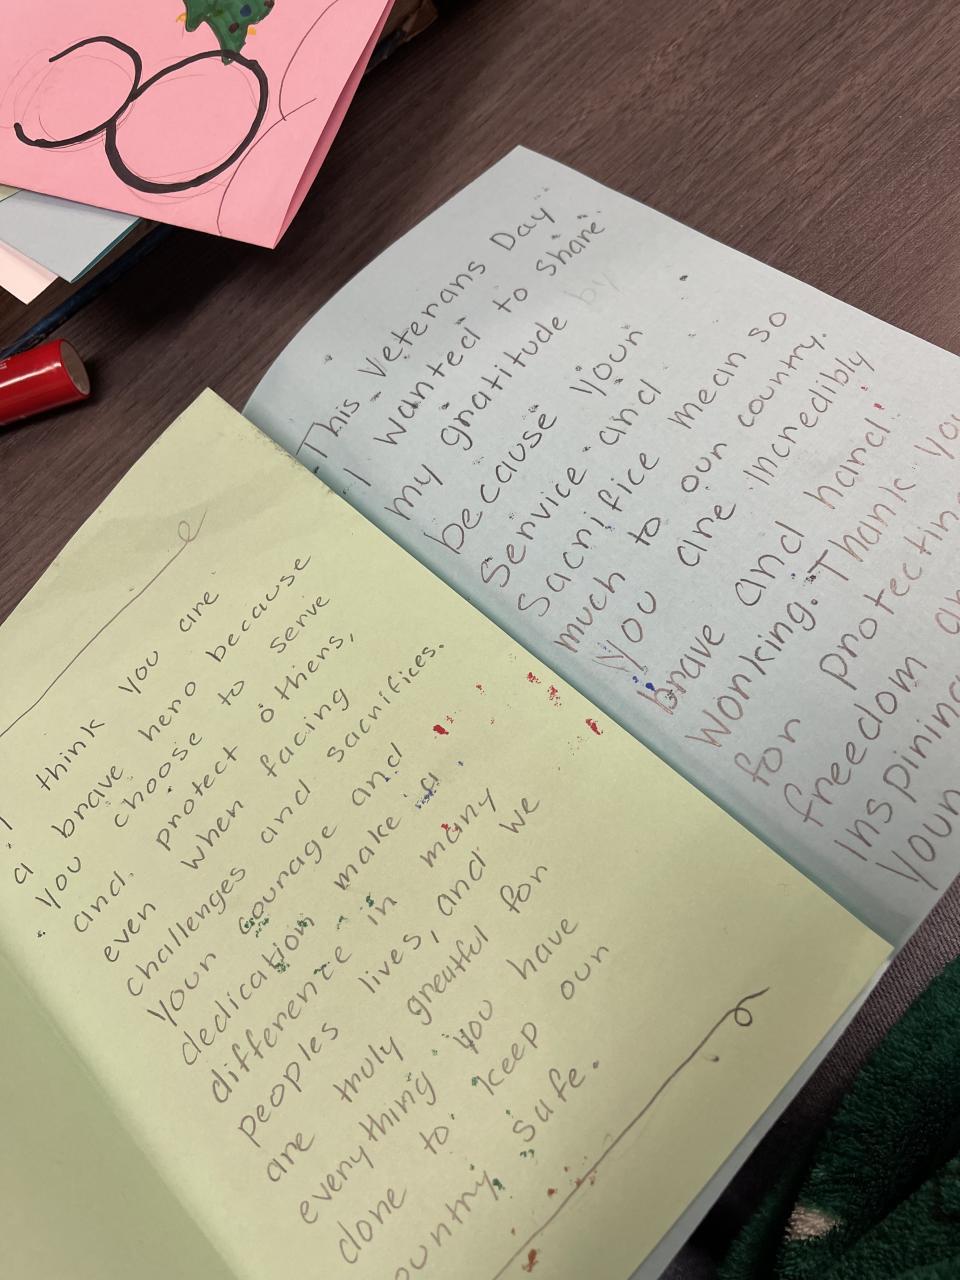 This Veterans Day
I wanted to share
my gratitude by
because your
Service and
Sacrifice mean so
much to our country.
You are incredibly
brave and hard
working. Thank
for protecting
freedom
inspiring
your
I think you are
a brave hero because
you choose to serve
and protect others,
even when facing
challenges and sacrifices.
Your courage and
dedication make a
difference in many
peoples lives, and we
are truly greatful for
everything you have
done to keep our
safe.